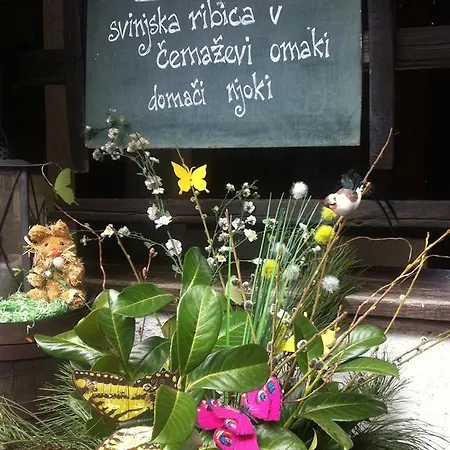 svinjska ribica v
čemaževi omaki
domači njoki